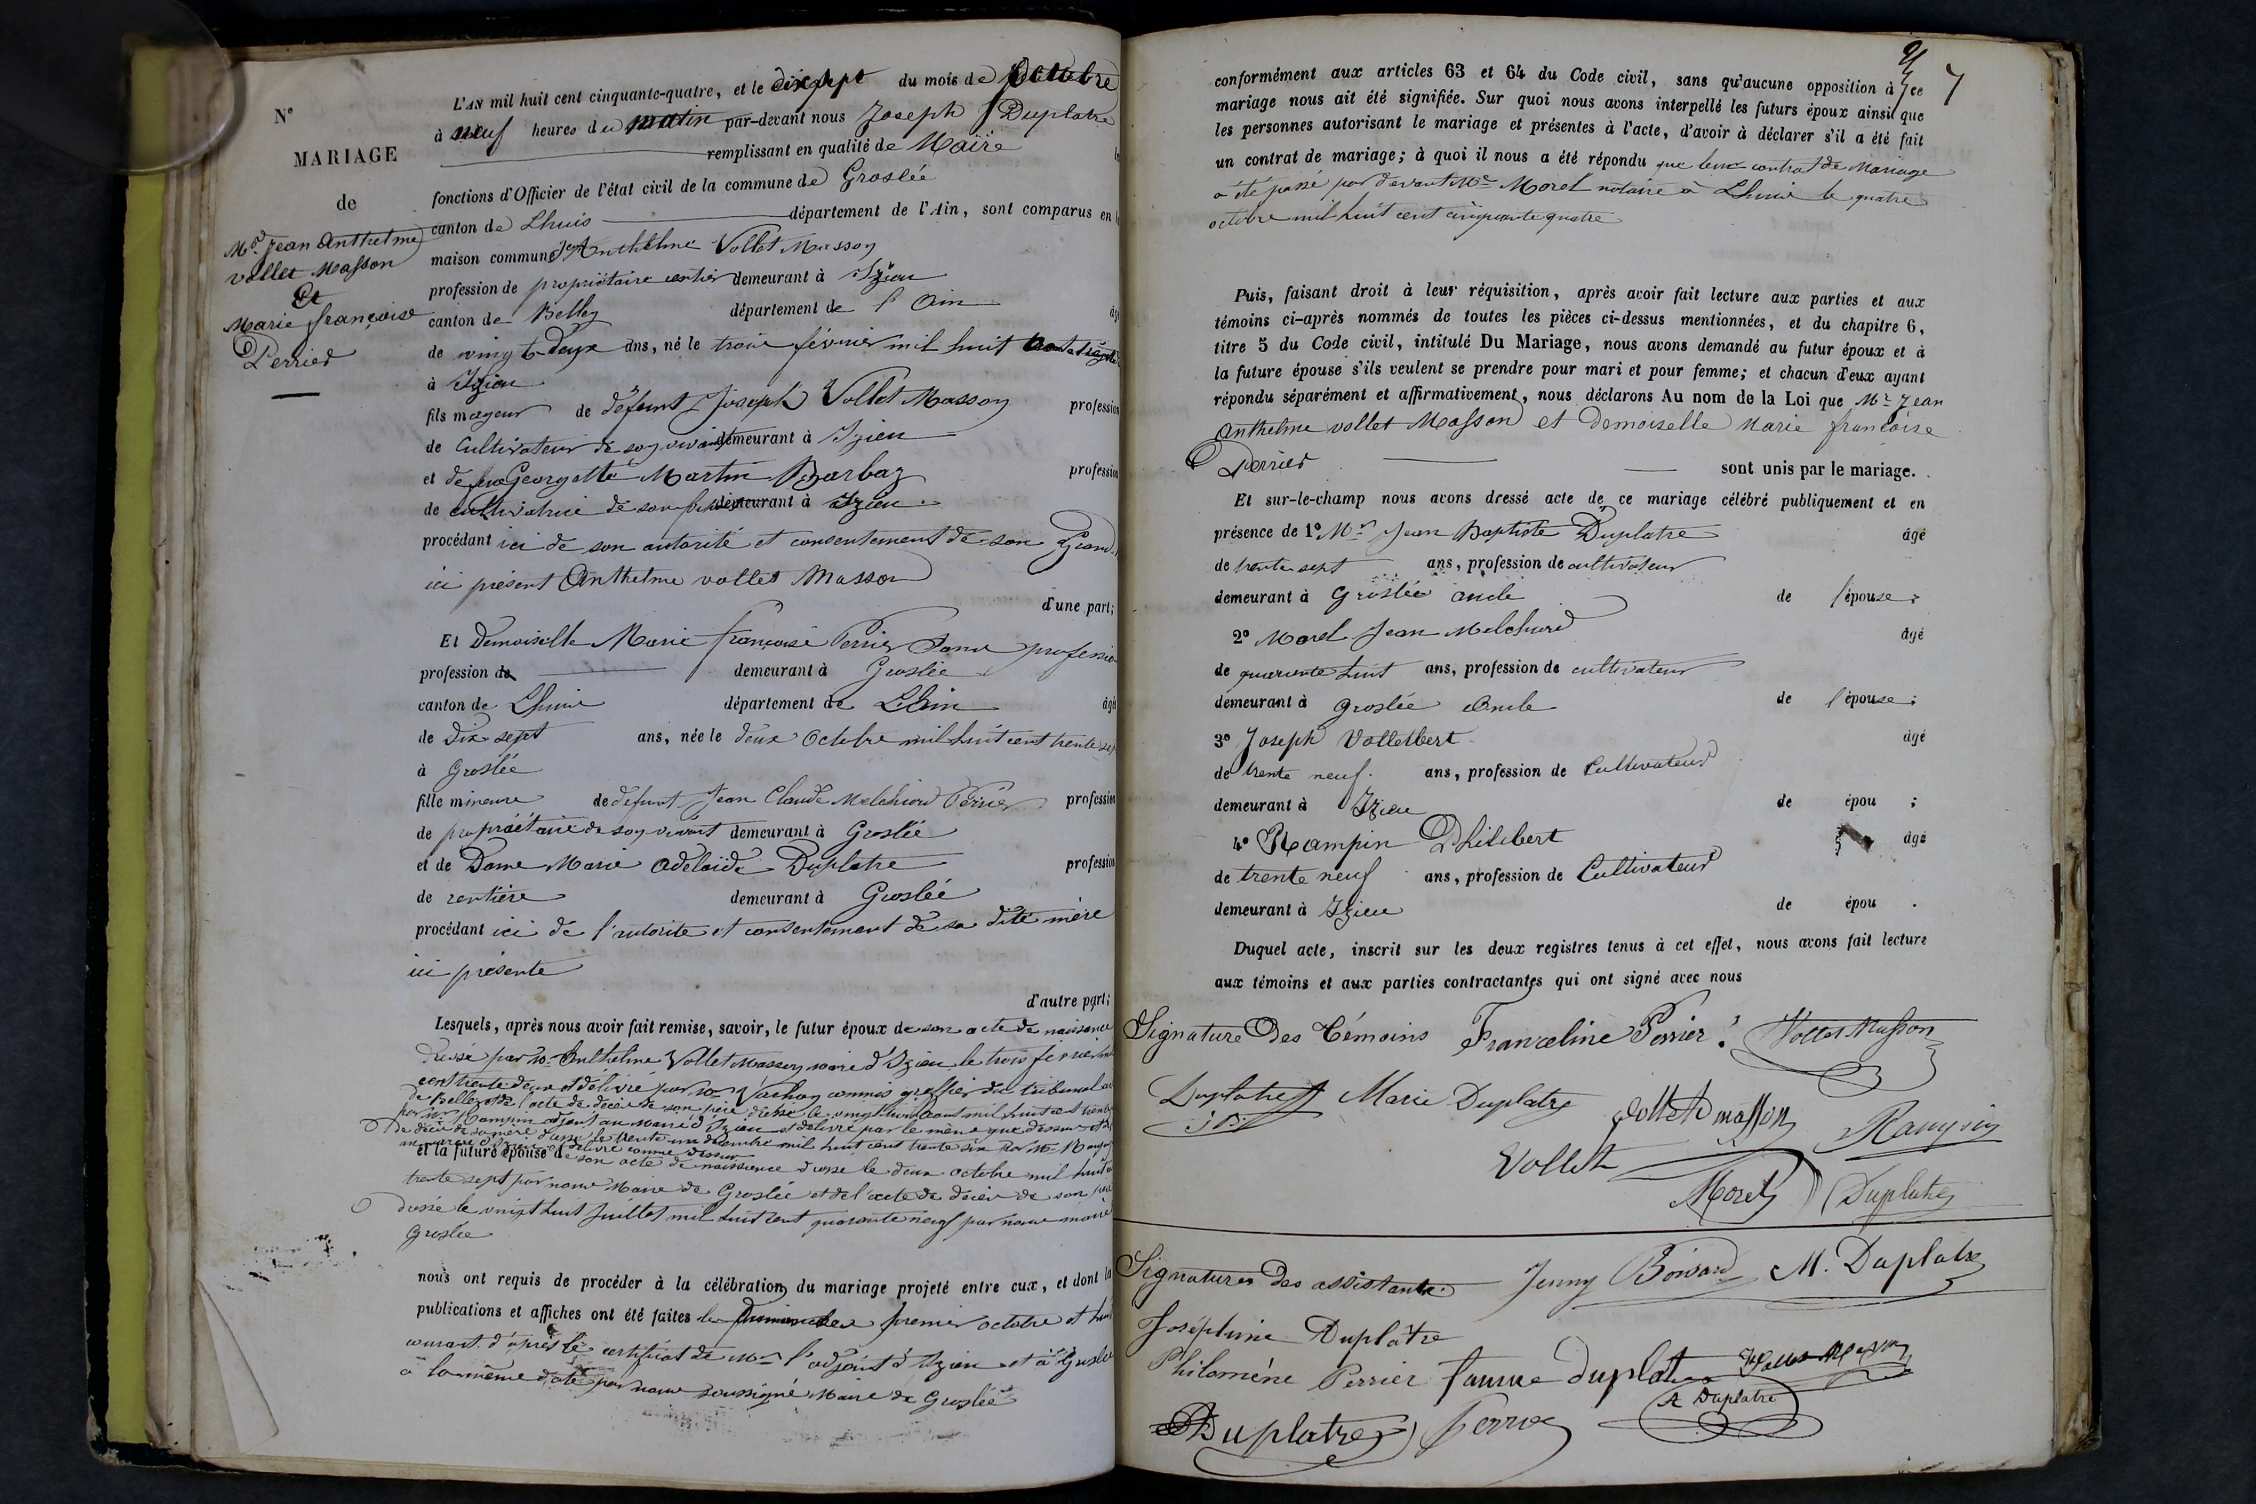 N°
MARIAGE
de
Mr Jean Anthelme
vollet Masson
Et
Marie françoise
Perrier
L'AN mil huit cent cinquante-quatre, et le dix sept du mois de octobre
à neuf heures du matin par-devant nous Joseph Duplatre
remplissant en qualité de Maire
fonctions d'Officier de l'état civil de la commune de Groslée
canton de Lhuis département de l'Ain, sont comparus en
maison commune Jn Anthelme Vollet Masson
profession de propriétaire rentier demeurant à Izieu
canton de Belley département de l'Ain
de vingt deux ans, né le trois février mil huit
à Izieu
fils mageur de défunt Joseph Vollet Masson profession
de Cultivateur de son vivant demeurant à Izieu
et de Georgette Martin Barbaz profession
de cultivatrice de son demeurant à Izieu
procédant ici de son autorité et consentement de son Grand
ici présent Anthelme vollet Masson
d'une part;
Et Demoiselle Marie françoise Perrier Sans profession
profession de demeurant à Groslée
canton de Lhuis département de L'Ain âgé
de Dix sept ans, née le deux Octobre mil huit cent trente sept
à Groslée
fille mineure de défunt Jean Claude Melchiord Perrier profession
de propriétaire de son vivant demeurant à Groslée
et de Dame Marie Adelaïde Duplatre profession
de rentière demeurant à Groslée
procédant ici de l'autorité et consentement de sa dite mère
ici présente
d'autre part;
Lesquels, après nous avoir fait remise, savoir, le futur époux de son acte de naissance
dressé par Mr Anthelme Vollet Masson maire d'Izieu le trois février
cent trente deux et délivré par Mr Vachon commis greffier du tribunal
de Belley et de l'acte de décès de son père dressé le vingt mil huit cent trente
par Mr Rampin adjoint au Maire d'Izieu et délivré par le même que dessus
de décès de sa mère dressé le trente un décembre mil huit cent trente six par Mr Rampin
délivré comme dessus
et la future épouse de son acte de naissance dressé le deux octobre mil huit
trente sept par nous Maire de Groslée et de l'acte de décès de son père
dressé le vingt huit Juillet mil huit cent quarante neuf par nous maire
Groslée
nous ont requis de procéder à la célébration du mariage projeté entre eux, et dont la
publications et affiches ont été faites les Dimanches premier octobre et huit
courant d'après le certificat de Mr l'adjoint d'Izieu et à Groslée
à la même date par nous soussigné Maire de Groslée
7
conformément aux articles 63 et 64 du Code civil, sans qu'aucune opposition à ce
mariage nous ait été signifiée. Sur quoi nous avons interpellé les futurs époux ainsi que
les personnes autorisant le mariage et présentes à l'acte, d'avoir à déclarer s'il a été fait
un contrat de mariage; à quoi il nous a été répondu que leur contrat de Mariage
a été passé par devant Me Morel notaire à Lhuis le quatre
octobre mil huit cent cinquante quatre
Puis, faisant droit à leur réquisition, après avoir fait lecture aux parties et aux
témoins ci-après nommés de toutes les pièces ci-dessus mentionnées, et du chapitre 6,
titre 5 du Code civil, intitulé Du Mariage, nous avons demandé au futur époux et à
la future épouse s'ils veulent se prendre pour mari et pour femme; et chacun d'eux ayant
répondu séparément et affirmativement, nous déclarons Au nom de la Loi que Mr Jean
Anthelme vollet Masson et Demoiselle Marie françoise
Perrier sont unis par le mariage.
Et sur-le-champ nous avons dressé acte de ce mariage célébré publiquement et en
présence de 1° Mr Jean Baptiste Duplatre âgé
de trente sept ans, profession de cultivateur
demeurant à Groslée oncle de l'épouse;
2° Morel Jean Melchiord âgé
de quarente huit ans, profession de cultivateur
demeurant à groslée oncle de l'épouse;
3° Joseph Volletbert âgé
de trente neuf. ans, profession de Cultivateur
demeurant à Izieu de épou ;
4° Rampin Philibert âgé
de trente neuf ans, profession de Cultivateur
demeurant à Izieu de épou .
Duquel acte, inscrit sur les deux registres tenus à cet effet, nous avons fait lecture
aux témoins et aux parties contractantes qui ont signé avec nous
Signature Des Témoins Franceline Perrier Vollet Masson
Duplatre Marie Duplatre vollet masson Rampin
Vollet
Morel Duplatre
Signatures Des assistants Jenny Boivard M. Duplatre
Joséphine Duplatre
Philomène Perrier fanni duplatre Vollet Masson
A Duplatre
Duplatre